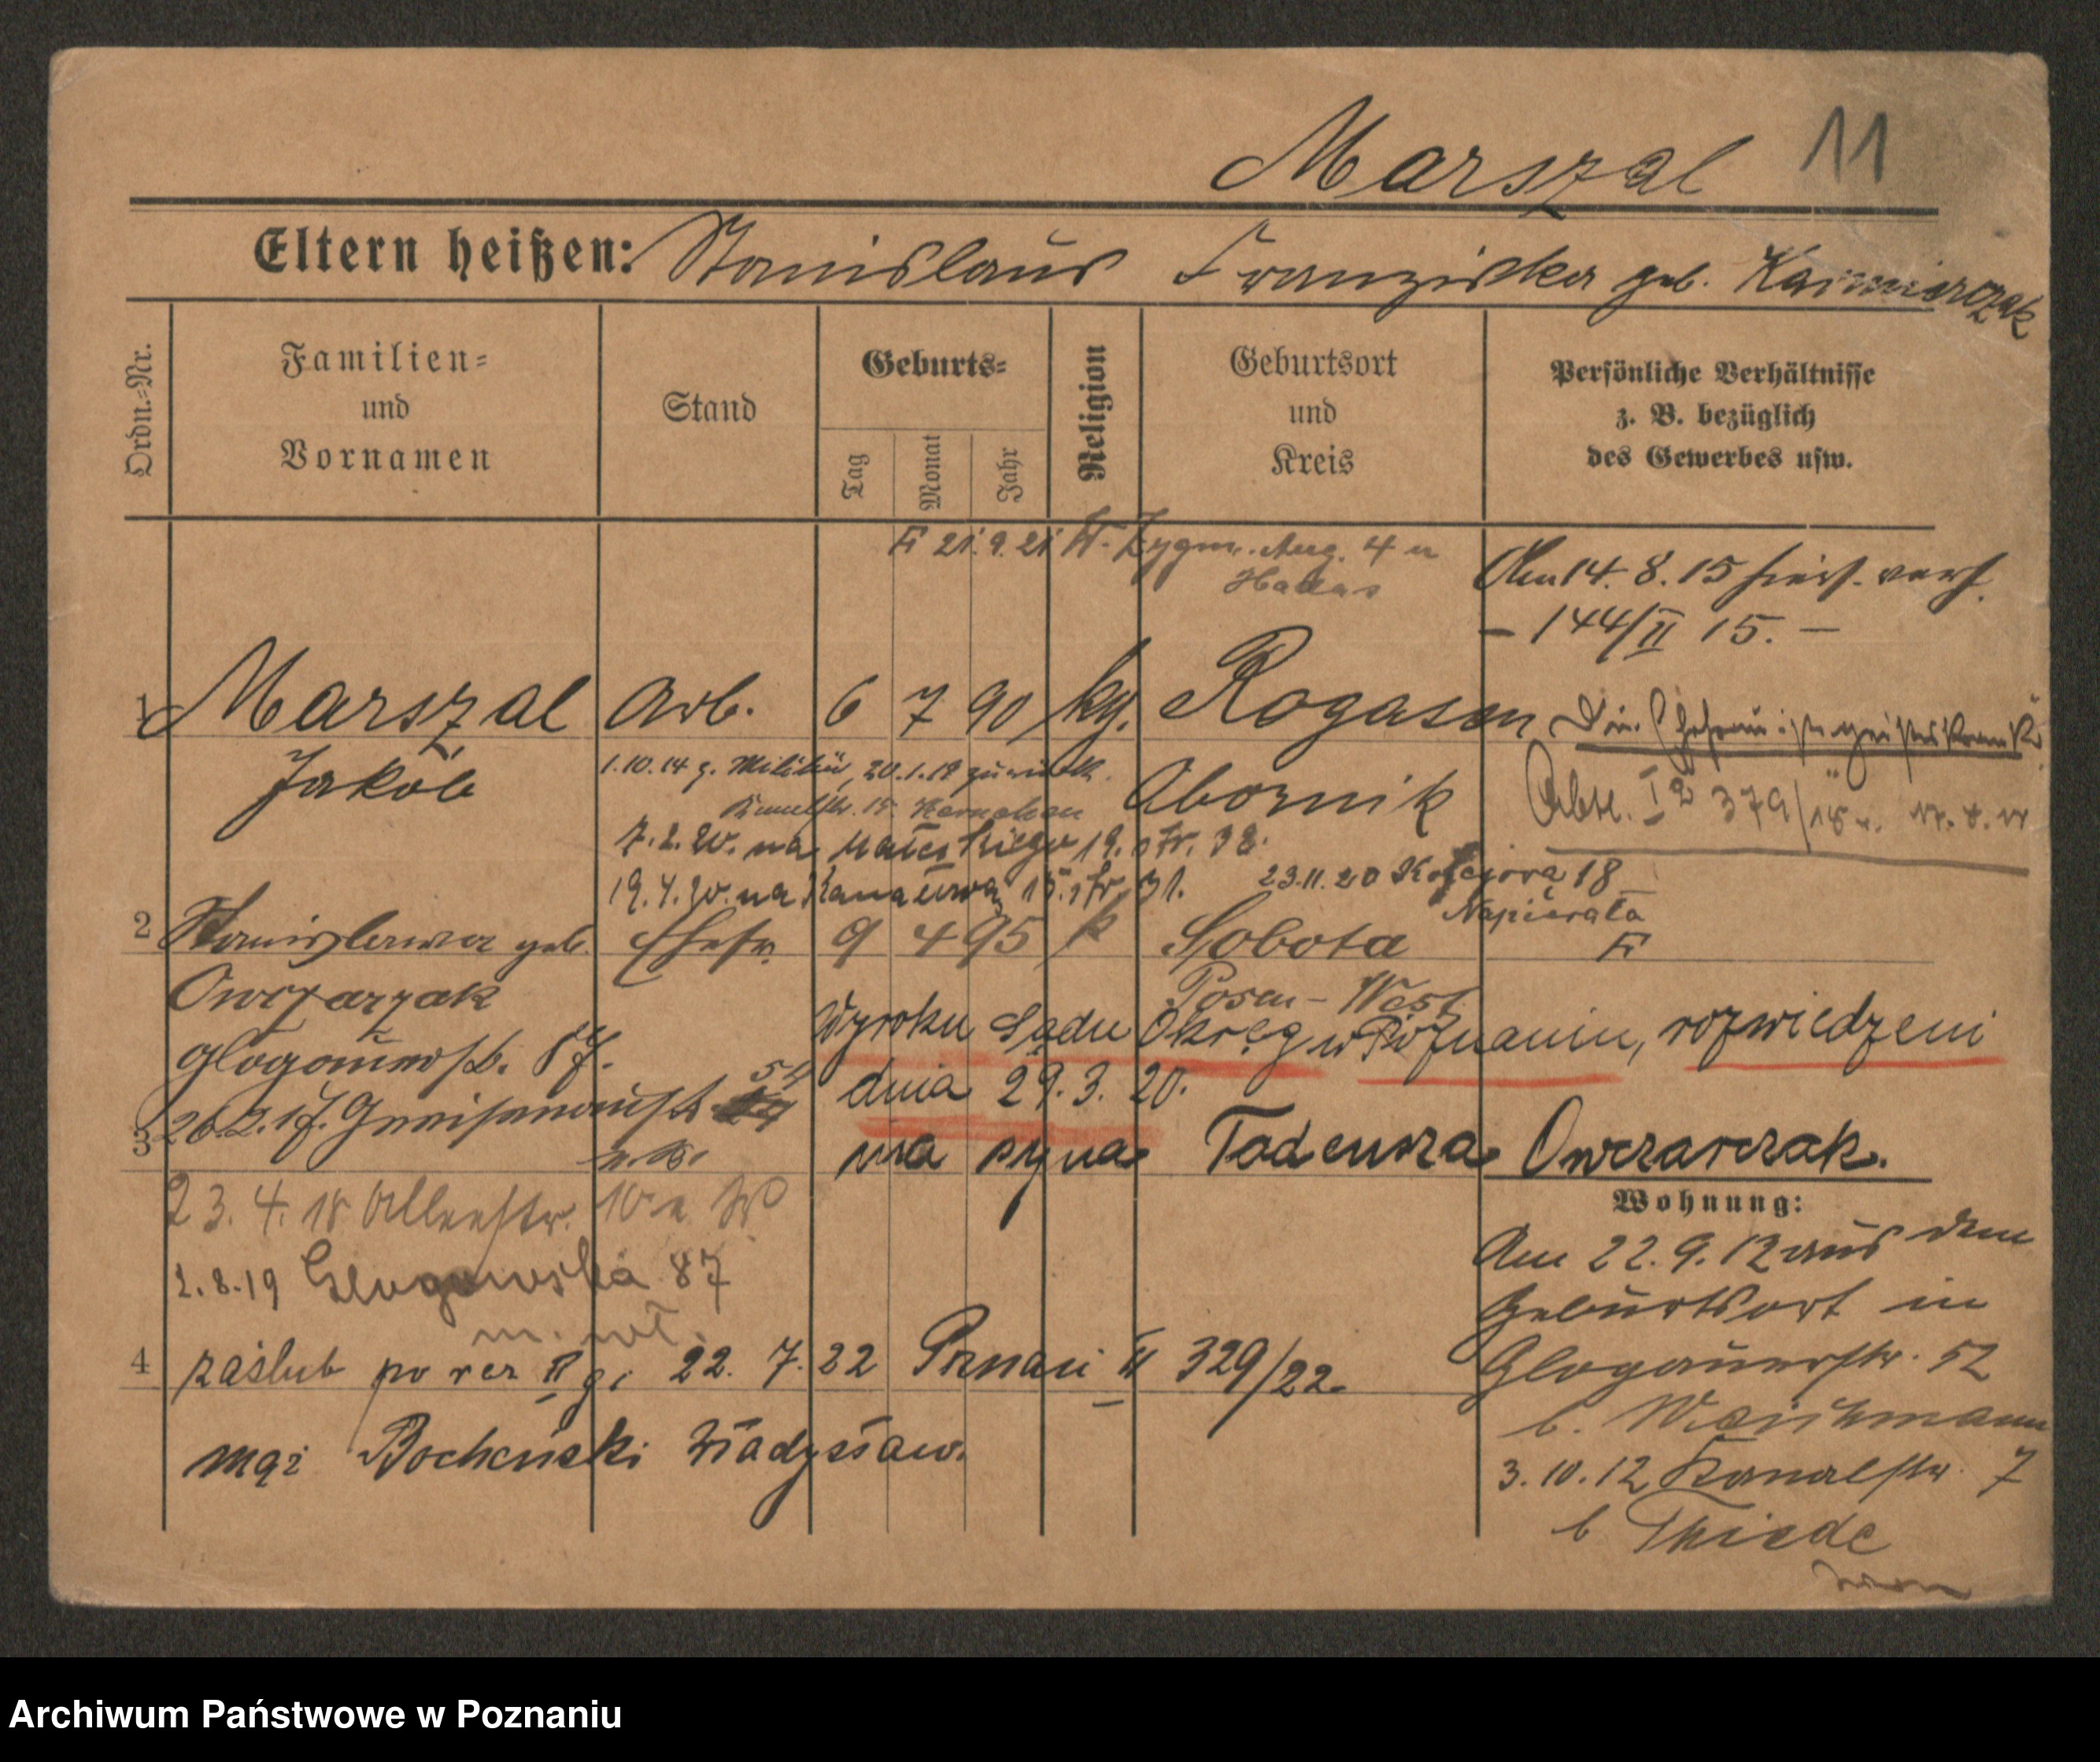 Marszal 11
Eltern heißen: Stanislaus Franziska geb. Kazmierczak
Ordn.-Nr.
Familien-
und
Vornamen
Stand
Geburts-
Tag
Monat
Jahr
Religion
Geburtsort
und
Kreis
Persönliche Verhältnisse
z. B. bezüglich
des Gewerbes usw.
21.9.21 Zygm. Aug. 4
Am 14. 8. 15 verh.
– 144/II 15. –
1 Marszal Arb. 6 7 90 kg. Rogasen
Jakob
1.10.14 z. Militär, 20.1.19 zurück
Obornik
Die Ehefrau ist geisteskrank
379/18
7.2.20. na 19. str. 38.
19.4.20. na Kanałowa 15. str. 31.
23.11.20 18
Napierała
2 Stanislawa geb. Ehefr. 9 4 95 k Sobota
Owczarzak
Posen – West
Glogauerstr. 87.
Wyroku Sądu Okręg w Poznaniu, rozwiedzeni
dnia 29. 3. 20.
26.2.17. Gneisenaustr. 54
3
ma syna Tadeusza Owczarczak.
23. 4. 18 10
Wohnung:
2.8.19 Glogowska 87
m. wł.
Am 22. 9. 12 aus dem
Geburtsort in
Glogauerstr. 52
4 zaślub po raz II gi 22. 7. 22 Poznań II 329/22.
mąż Bocheński Władysław.
3. 10. 12 Kanalstr. 7
b Thiede
Archiwum Państwowe w Poznaniu